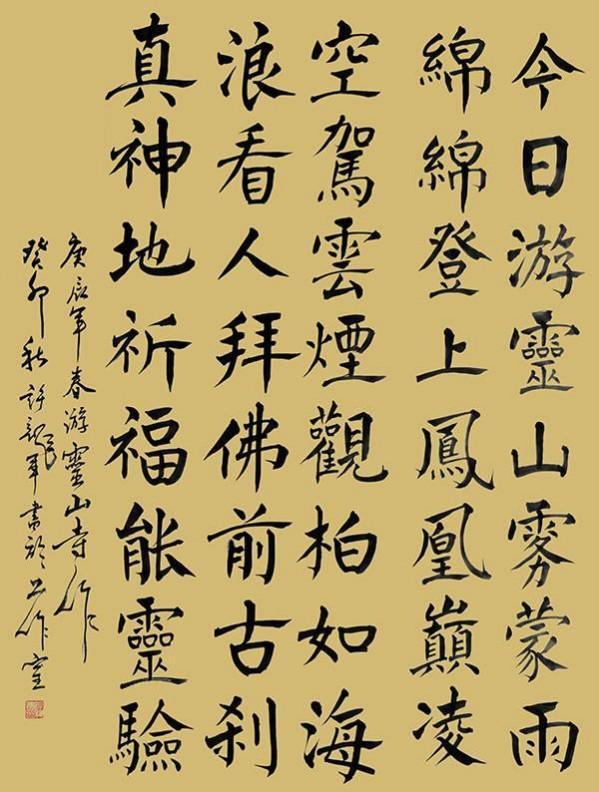 今日游靈山雾蒙雨
綿綿登上鳳凰巔凌
空駕雲煙觀柏如海
浪看人拜佛前古刹
真神地祈福能靈驗
庚辰年春游靈山寺作
癸卯秋許军書於工作室